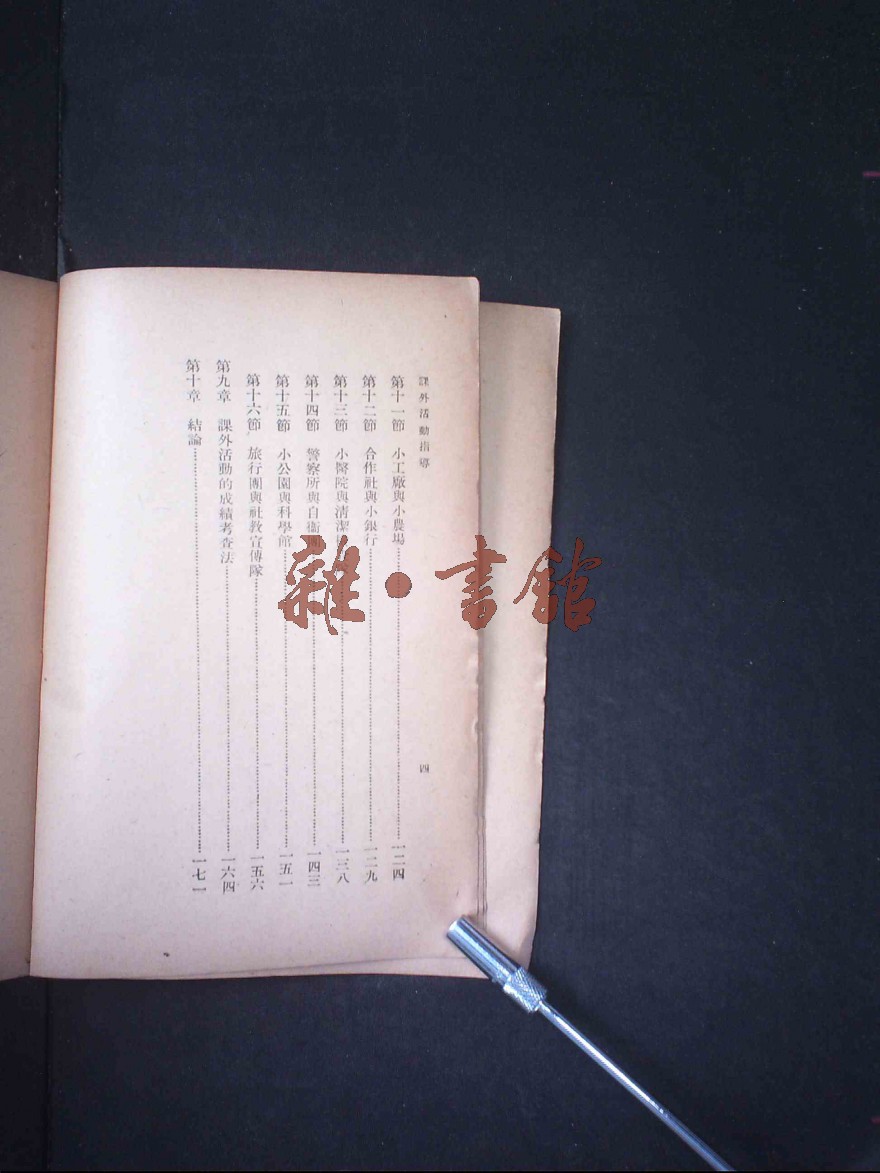 課外活動指導
四
第十一節 小工廠與小農場……一二四
第十二節 合作社與小銀行……一二九
第十三節 小醫院與清潔……一三八
第十四節 警察所與自衞團……一四三
第十五節 小公園與科學館……一五一
第十六節 旅行團與社教宣傳隊……一五六
第九章 課外活動的成績考查法……一六四
第十章 結論……一七一
雜·書館